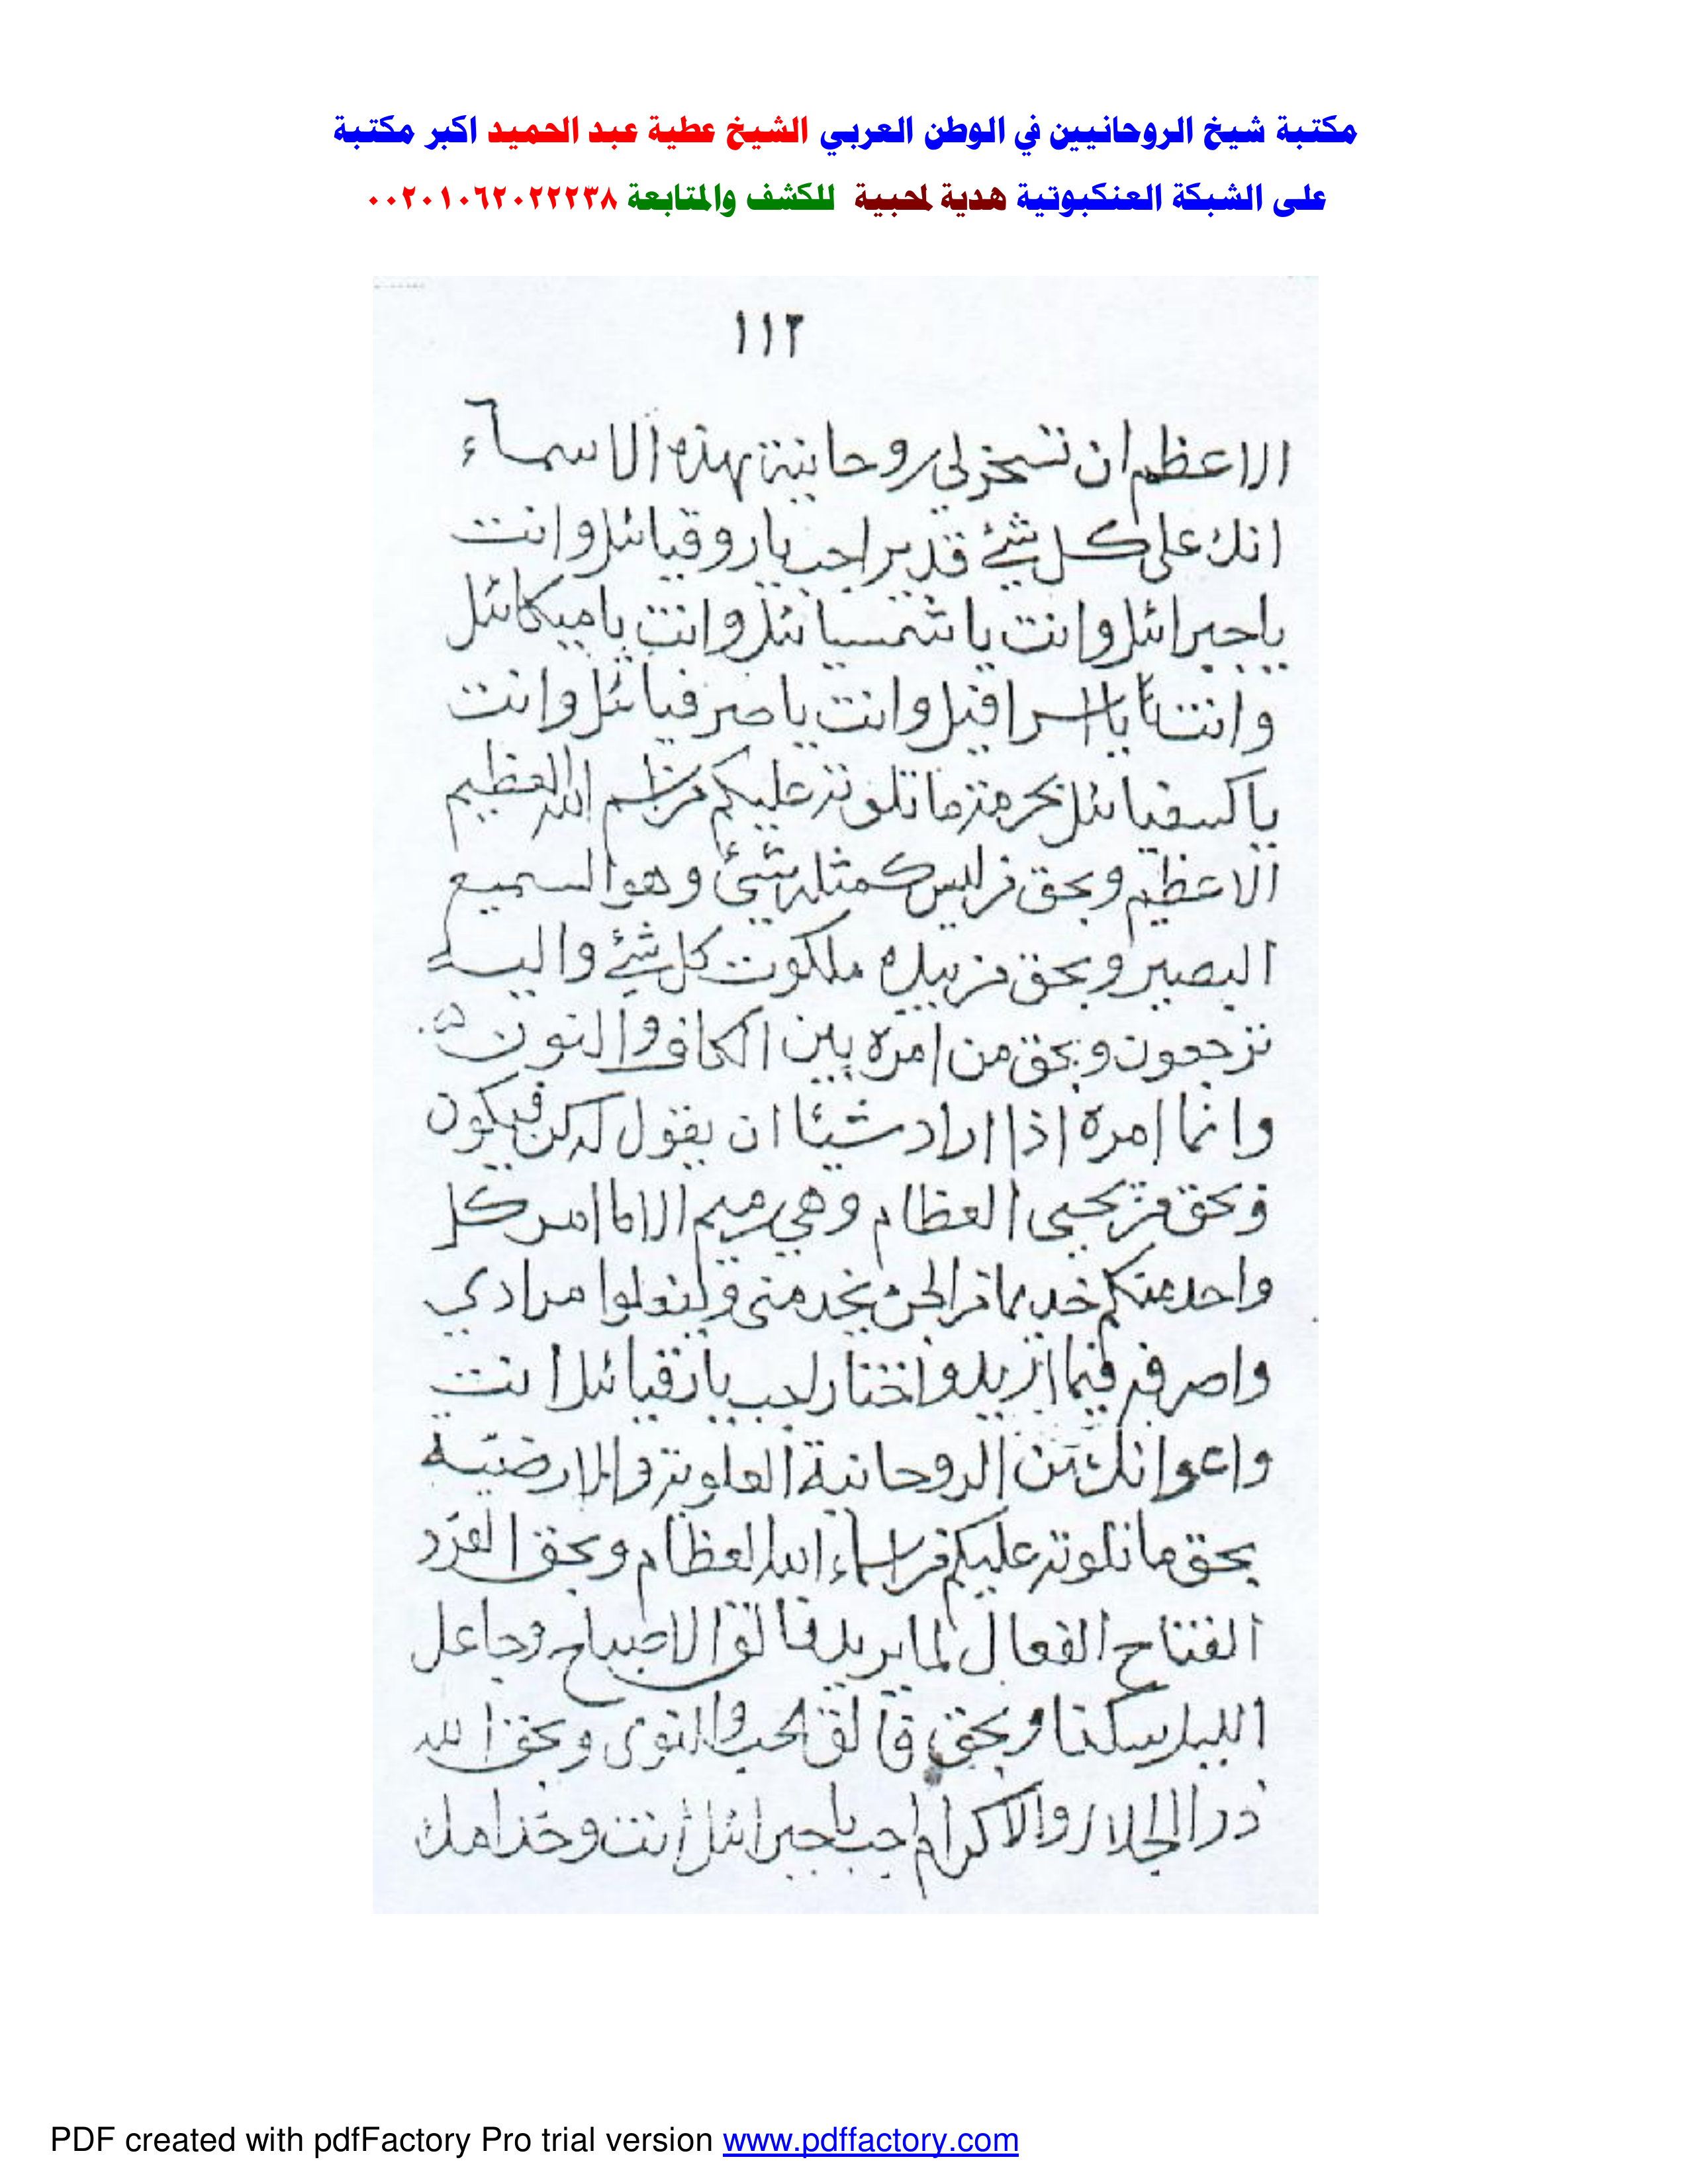 مكتبة شيخ الروحانيين في الوطن العربي الشيخ عطية عبد الحميد اكبر مكتبة
على الشبكة العنكبوتية هدية لمحبية للكشف والمتابعة ٠٠٢٠١٠٦٢٠٢٢٢٣٨
١١٢
الاعظم ان تسخر لي روحانية بهذه الاسماء
انك على كل شئ قدير اجب يا روقيائل وانت
يا جبرائل وانت يا شمسيائل وانت يا ميكائل
وانت يا اسرافيل وانت يا صرفيائل وانت
يا كسفيائل بحرمة ما تلوته عليكم من اسم الله العظيم
الاعظم وبحق من ليس كمثله شئ وهو السميع
البصير وبحق من بيده ملكوت كل شئ واليه
ترجعون وبحق من امره بين الكاف والنون
وانما امره اذا اراد شيئا ان يقول له كن فيكون
وبحق من يحيى العظام وهي رميم الا ما امر كل
واحد منكم خديما من الجن يخدمني وليفعلوا مرادي
واصرفه فيما اريد واختار اجب يا رقيائل انت
واعوانك من الروحانية العلوية والارضية
بحق ما تلوته عليكم من اسماء الله العظام وبحق الفرد
الفتاح الفعال لما يريد فالق الاصباح وجاعل
الليل سكنا وبحق فالق الحب والنوى وبحق الله
ذو الجلال والاكرام اجب يا جبرائل انت وخدامك
PDF created with pdfFactory Pro trial version www.pdffactory.com